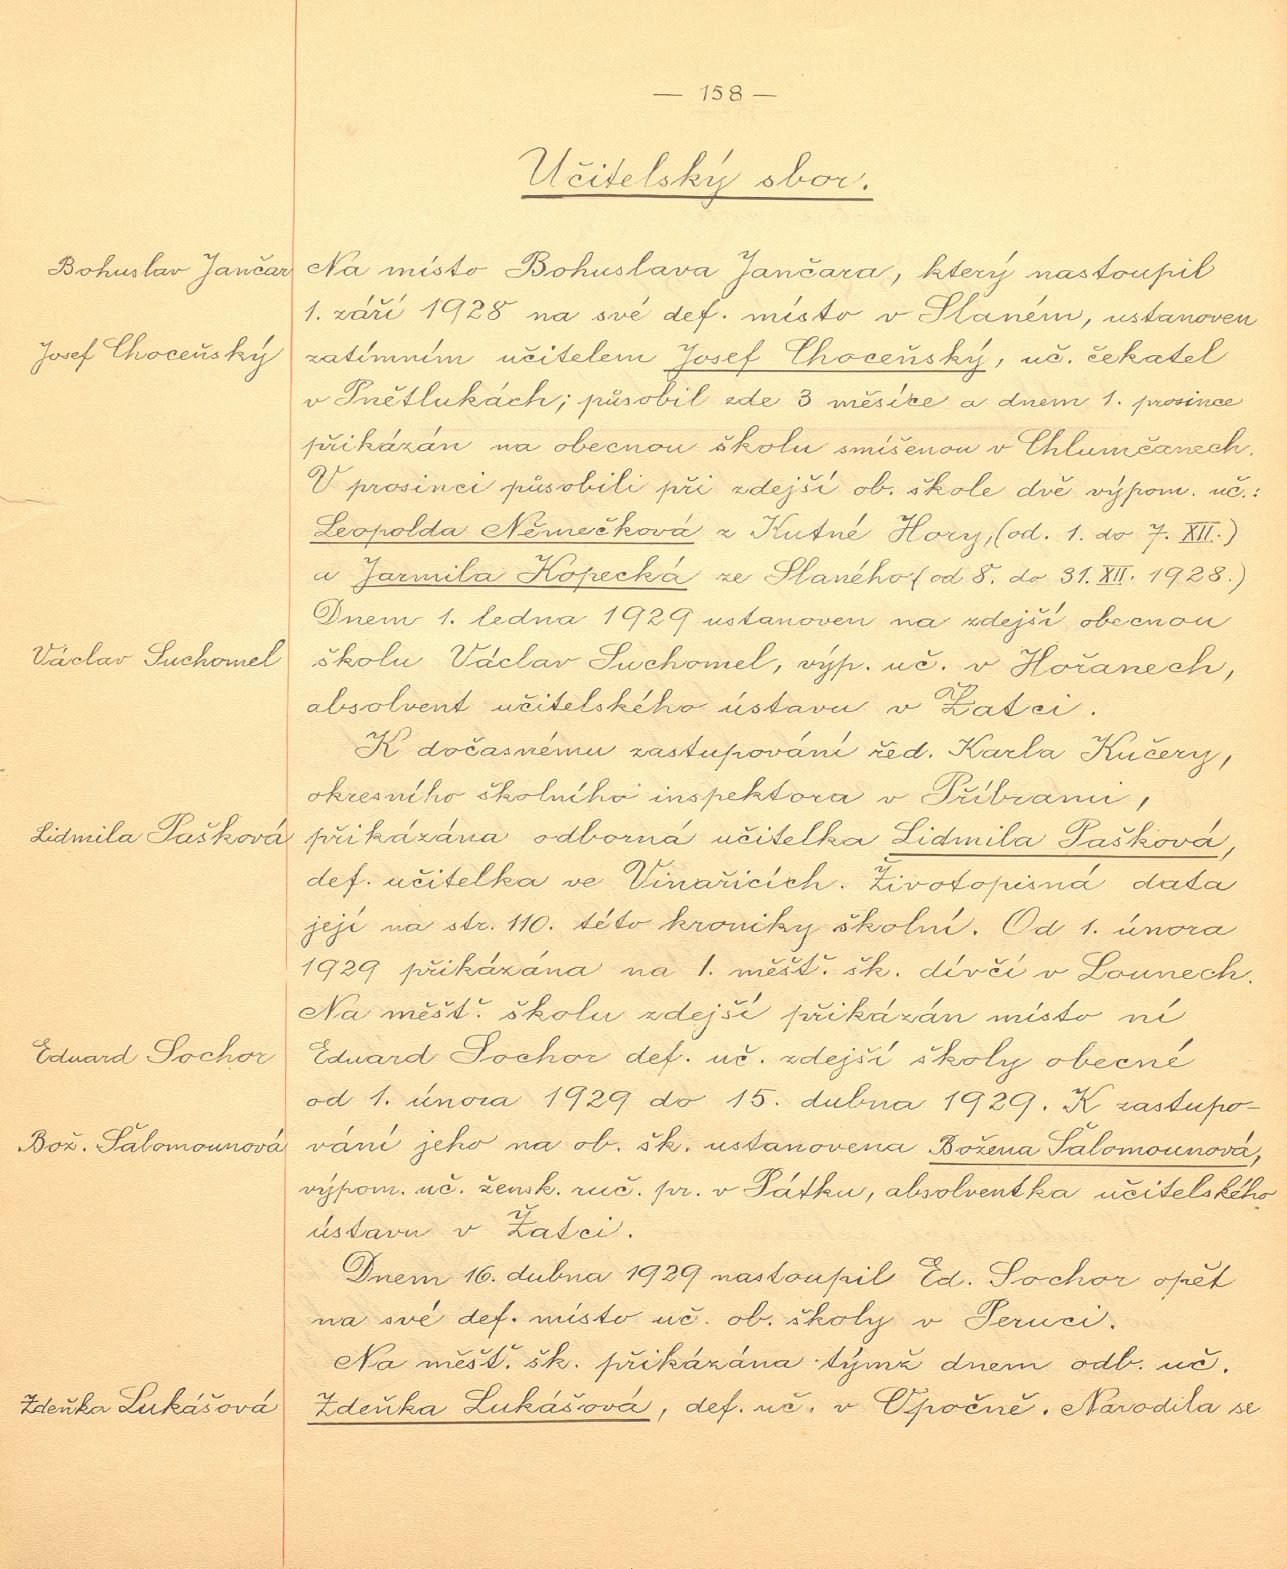 — 158 —
Učitelský sbor.
Bohuslav Jančar
Na místo Bohuslava Jančara, který nastoupil
1. září 1928 na své def. místo v Slaném, ustanoven
Josef Choceňský
zatímním učitelem Josef Choceňský, uč. čekatel
v Pnětlukách; působil zde 3 měsíce a dnem 1. prosince
přikázán na obecnou školu smíšenou v Chlumčanech.
V prosinci působili při zdejší ob. škole dvě výpom. uč.:
Leopolda Němečková z Kutné Hory, (od. 1. do 7. XII.)
a Jarmila Kopecká ze Slaného (od 8. do 31. XII. 1928.)
Dnem 1. ledna 1929 ustanoven na zdejší obecnou
Václav Suchomel
školu Václav Suchomel, výp. uč. v Hořanech,
absolvent učitelského ústavu v Žatci.
K dočasnému zastupování řed. Karla Kučery,
okresního školního inspektora v Příbrami,
Lidmila Pašková
přikázána odborná učitelka Lidmila Pašková,
def. učitelka ve Vinařicích. Životopisná data
její na str. 110. této kroniky školní. Od 1. února
1929 přikázána na 1. měšť. šk. dívčí v Lounech.
Na měšť. školu zdejší přikázán místo ní
Eduard Sochor
Eduard Sochor def. uč. zdejší školy obecné
od 1. února 1929 do 15. dubna 1929. K zastupo-
Bož. Šalomounová
vání jeho na ob. šk. ustanovena Božena Šalomounová,
výpom. uč. žensk. ruč. pr. v Pátku, absolventka učitelského
ústavu v Žatci.
Dnem 16. dubna 1929 nastoupil Ed. Sochor opět
na své def. místo uč. ob. školy v Peruci.
Na měšť. šk. přikázána týmž dnem odb. uč.
Zdeňka Lukášová
Zdeňka Lukášová, def. uč. v Opočně. Narodila se